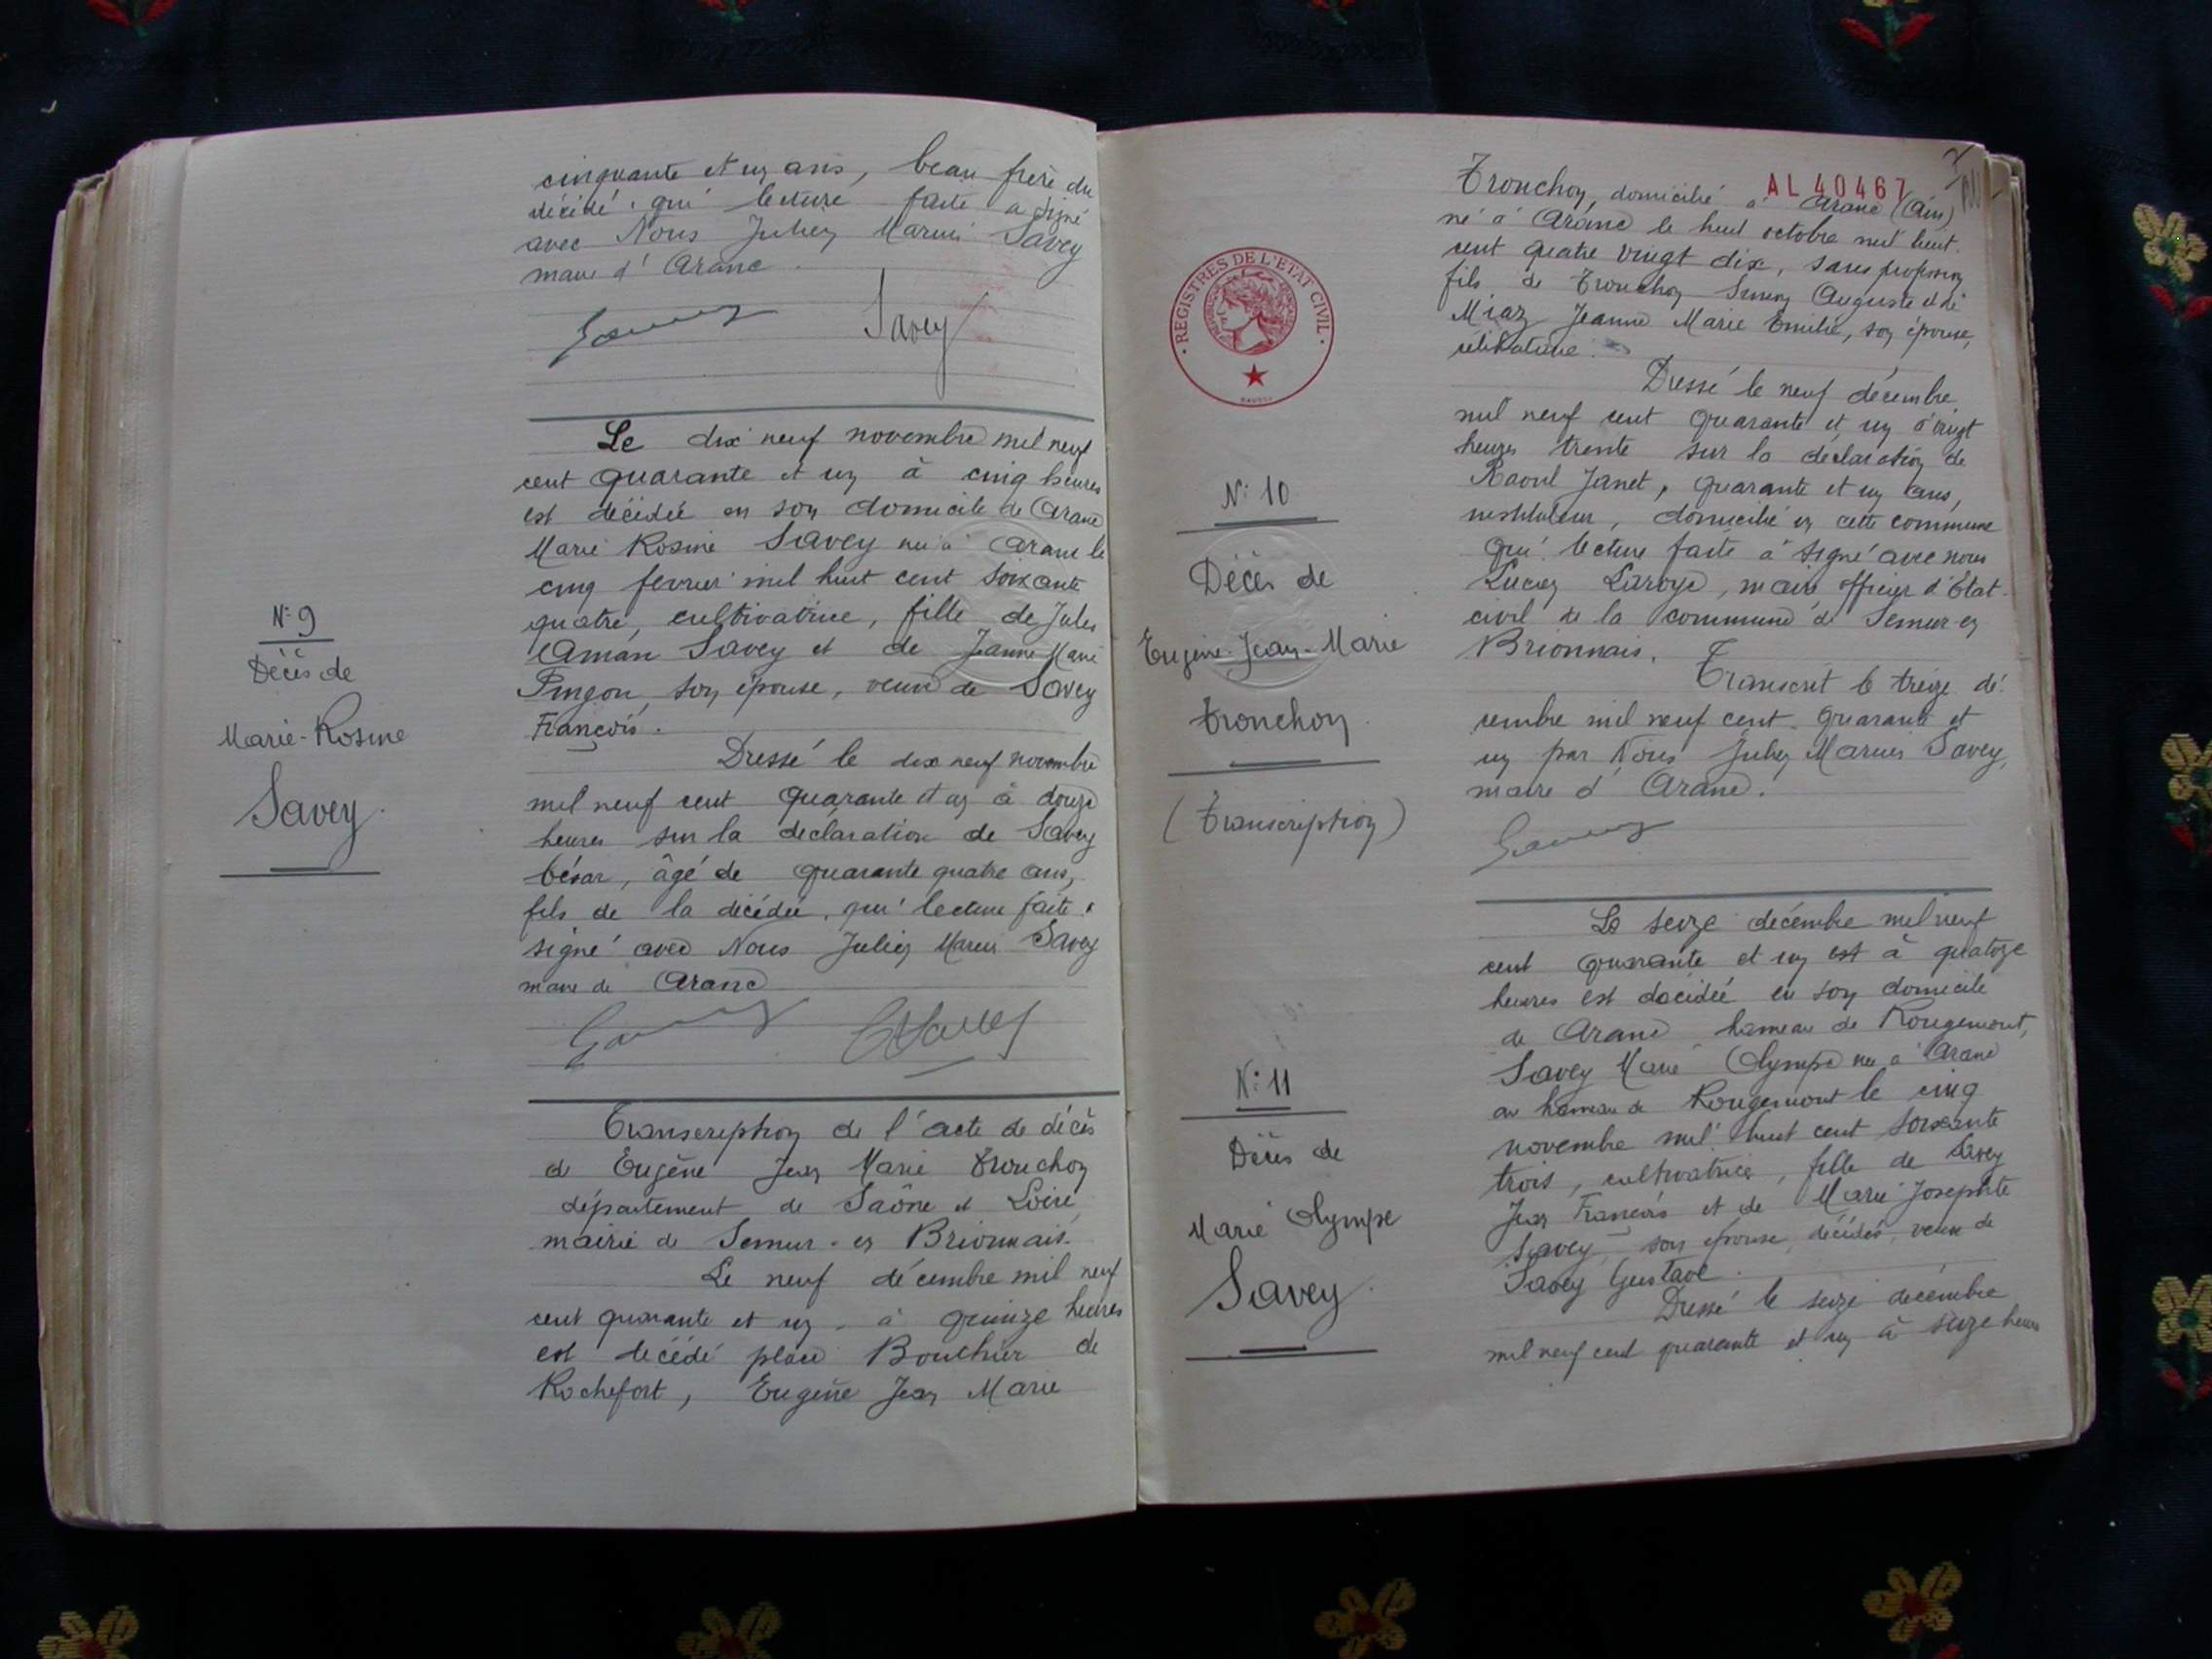 cinquante et un ans, beau frère du
décédé, qui lecture faite a signé
avec Nous Julien Marius Savey
maire d'Aranc.
Savey
N° 9
Décès de
Marie-Rosine
Savey.
Le dix neuf novembre mil neuf
cent quarante et un à cinq heures
est décédée en son domicile de Aranc
Marie Rosine Savey née à Aranc le
cinq fevrier mil huit cent soixante
quatre, cultivatrice, fille de Jules
Aman Savey et de Jeanne Marie
Pingon, son épouse, veuve de Savey
François.
Dressé le dix neuf novembre
mil neuf cent quarante et un à douze
heures sur la déclaration de Savey
César, âgé de quarante quatre ans,
fils de la décédée, qui lecture faite a
signé avec Nous Julien Marius Savey
maire de Aranc
Transcription de l'acte de décès
de Eugène Jean Marie Tronchon
département de Saône et Loire,
mairie de Semur-en Brionnais.
Le neuf décembre mil neuf
cent quarante et un - à quinze heures
est décédé place Bouthier de
Rochefort, Eugène Jean Marie
AL 40467
REGISTRES DE L'ETAT CIVIL
N° 10
Décès de
Eugène-Jean-Marie
Tronchon.
(Transcription)
Tronchon, domicilié à Aranc (Ain)
né à Aranc le huit octobre mil huit
cent quatre vingt dix, sans profession
fils de Tronchon Simon Auguste et de
Miaz Jeanne Marie Emilie, son épouse,
célibataire.
Dressé le neuf décembre
mil neuf cent quarante et un à vingt
heures trente sur la déclaration de
Raoul Janet, quarante et un ans,
instituteur, domicilié en cette commune
qui lecture faite a signé avec nous
Lucien Laroye, maire officier d'Etat-
civil de la commune de Semur-en
Brionnais.
Transcrit le treize dé-
cembre mil neuf cent quarante et
un par Nous Julien Marius Savey,
maire d'Aranc.
N° 11
Décès de
Marie Olympe
Savey.
Le seize décembre mil neuf
cent quarante et un est à quatoze
heures est décidée en son domicile
de Aranc hameau de Rougemont,
Savey Marie Olympe née à Aranc
au hameau de Rougemont le cinq
novembre mil huit cent soixante
trois, cultivatrice, fille de Savey
Jean François et de Marie Josephte
Savey, son épouse, décédés, veuve de
Savey Gustave.
Dressé le seize décembre
mil neuf cent quarante et un à seize heures